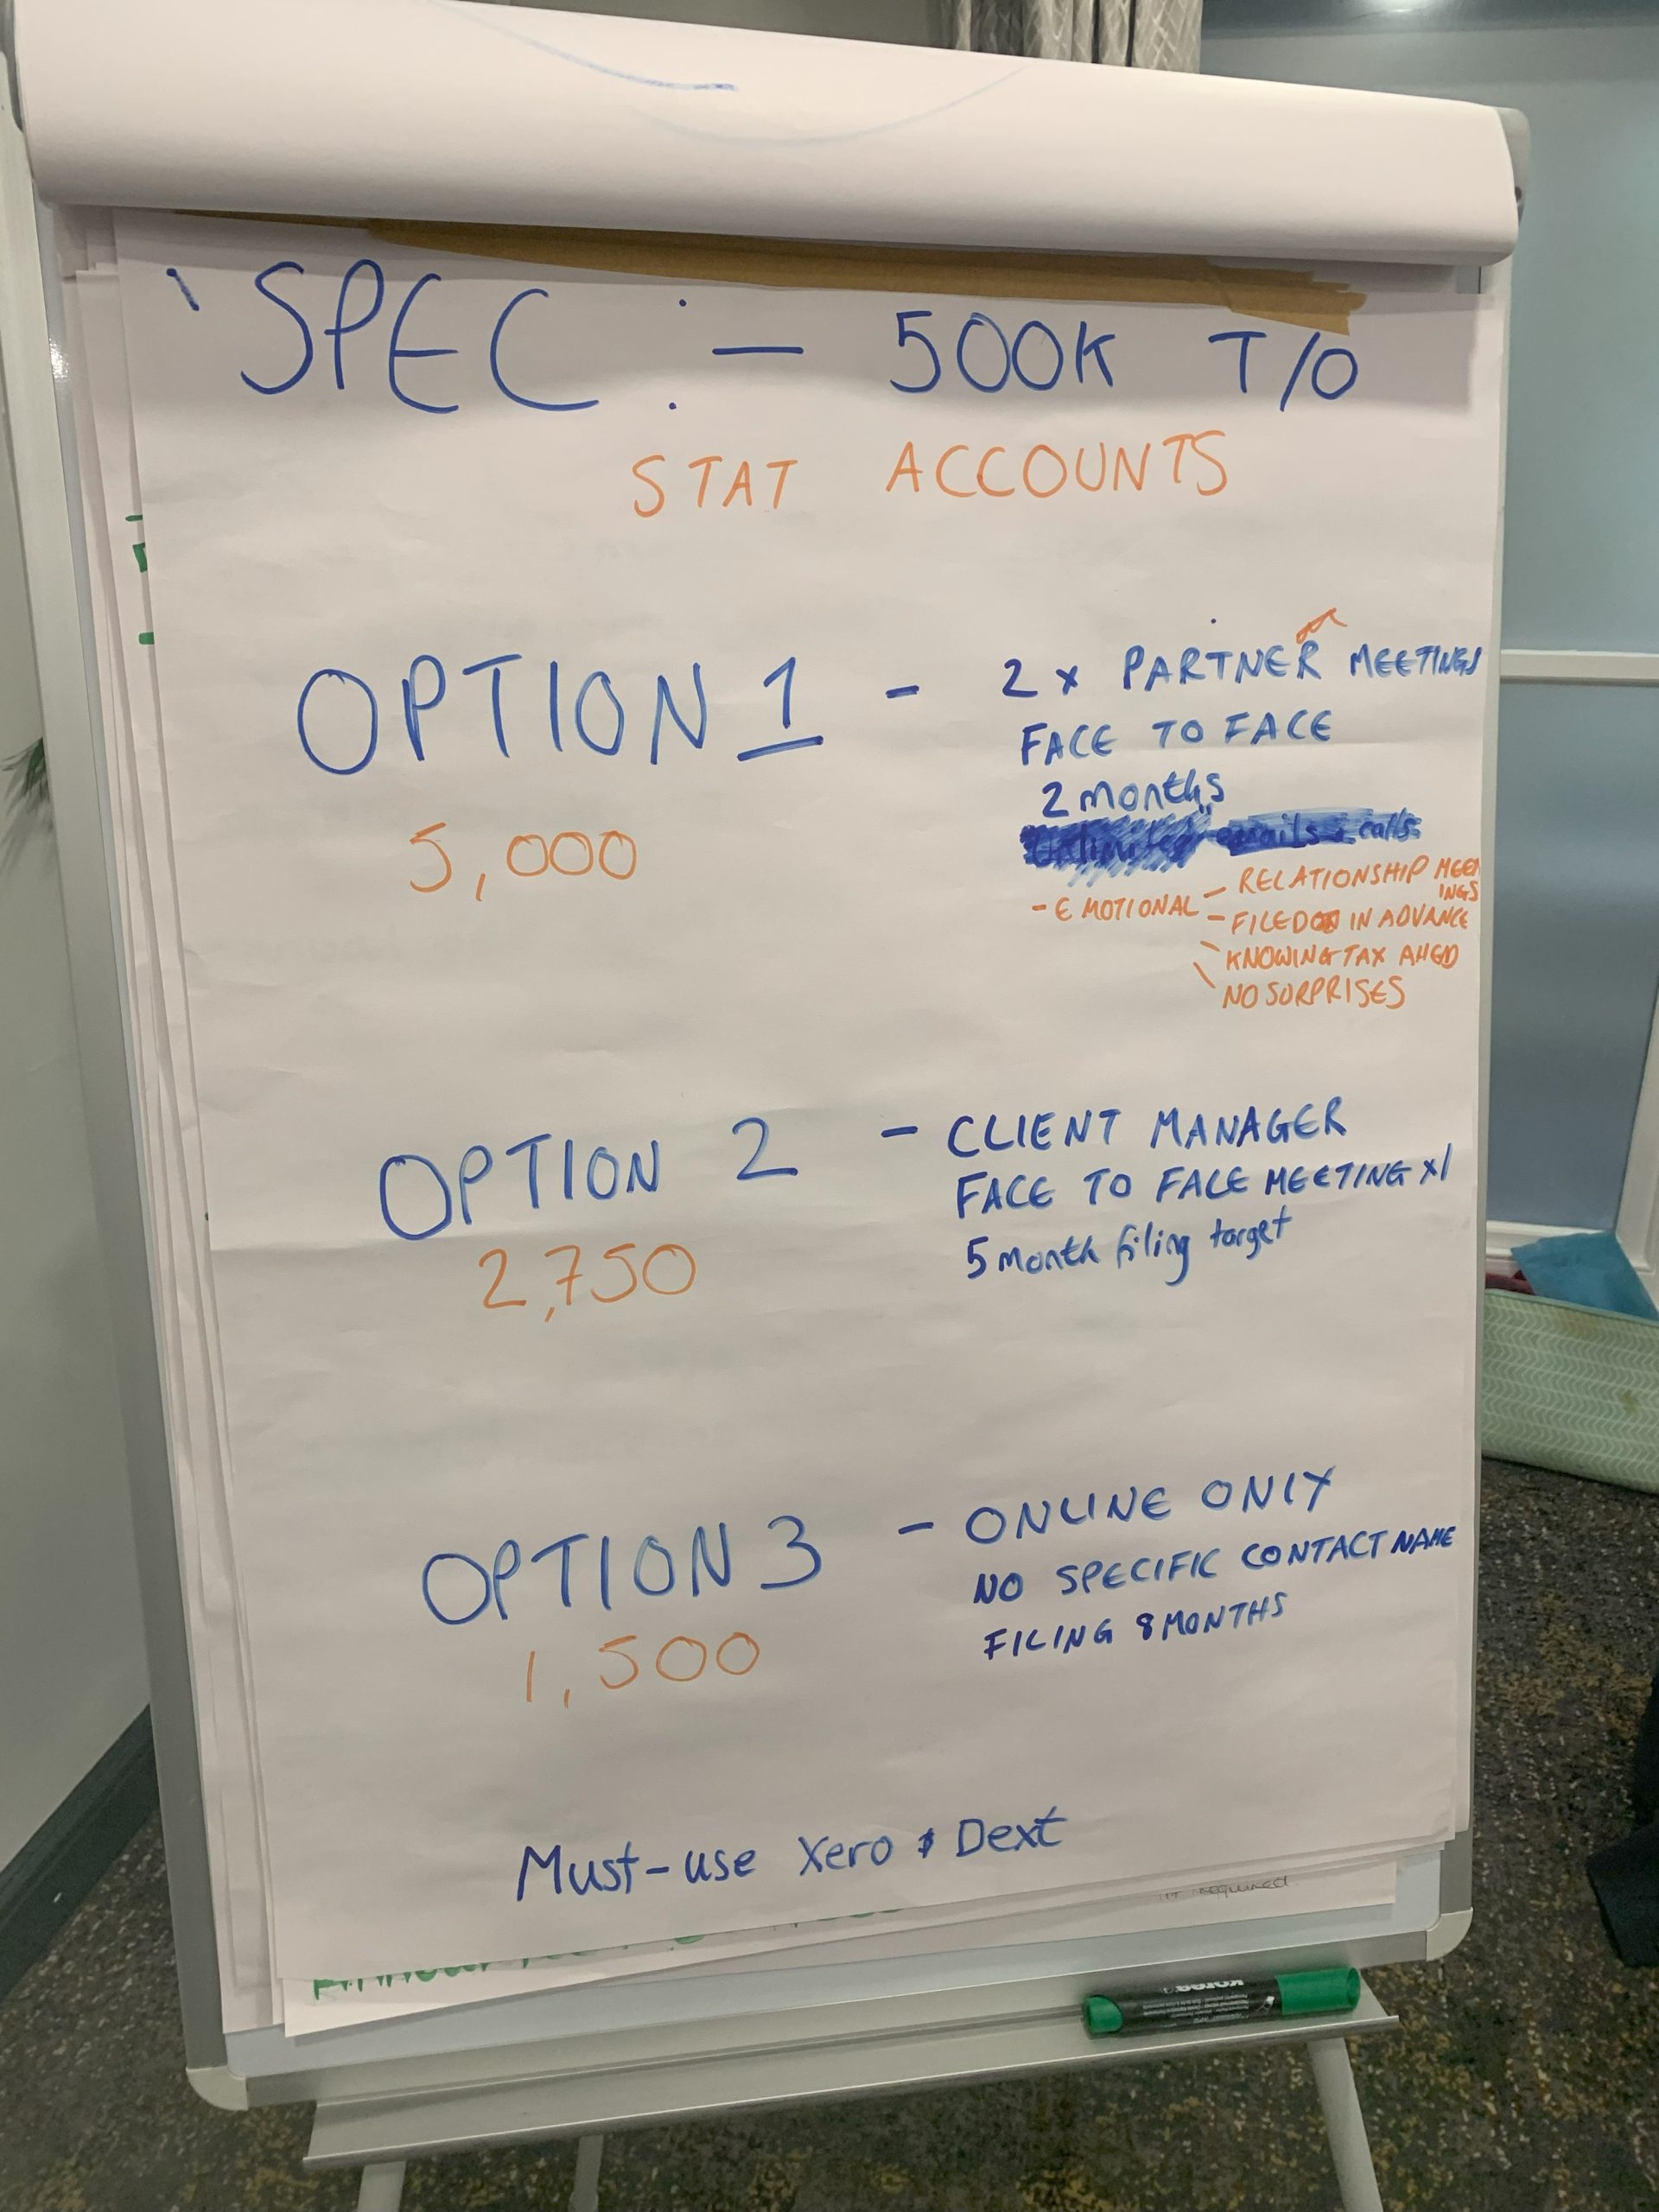 SPEC :- 500K T/O
STAT ACCOUNTS
OPTION 1 - 2 x PARTNER MEETINGS
FACE TO FACE
2 months
Unlimited emails & calls
5,000
- EMOTIONAL - RELATIONSHIP MEET
INGS
- FILED IN ADVANCE
KNOWING TAX AHED
NO SURPRISES
OPTION 2 - CLIENT MANAGER
FACE TO FACE MEETING x1
5 month filing target
2,750
OPTION 3 - ONLINE ONLY
NO SPECIFIC CONTACT NAME
FILING 8 MONTHS
1,500
Must-use Xero & Dext
if required